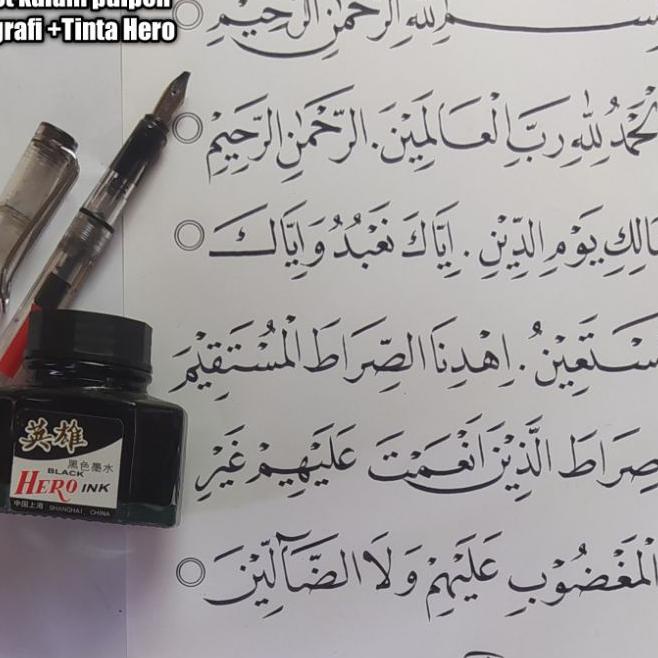 kalam pulpen
grafi +Tinta Hero
ـسم الله الرَّحْمٰنِ الرَّحِيْمِ
لْحَمْدُ لِلّٰهِ رَبِّ الْعَالَمِيْنَ. الرَّحْمٰنِ الرَّحِيْمِ
مَالِكِ يَوْمِ الدِّيْنِ. اِيَّاكَ نَعْبُدُ وَاِيَّاكَ
سْتَعِيْنُ. اِهْدِنَا الصِّرَاطَ الْمُسْتَقِيْمَ
صِرَاطَ الَّذِيْنَ اَنْعَمْتَ عَلَيْهِمْ غَيْرِ
الْمَغْضُوْبِ عَلَيْهِمْ وَلَا الضَّآلِّيْنَ
英雄
黑色墨水
BLACK
HERO INK
中国上海 SHANGHAI, CHINA